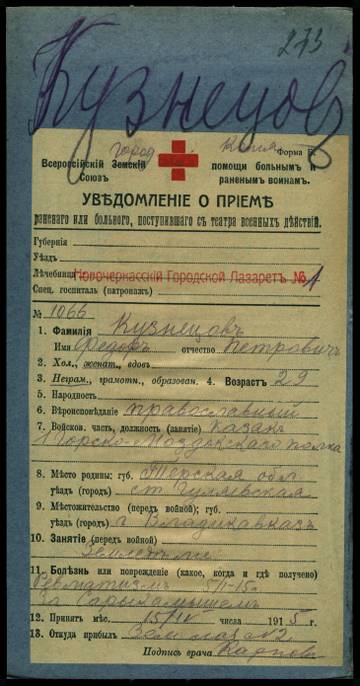 273
Кузнецов
город
Форма Б.
Всероссійскій Земскій Союзъ
помощи больнымъ и раненымъ воинамъ.
УВѢДОМЛЕНІЕ О ПРІЕМѢ
раненаго или больного, поступившаго съ театра военныхъ дѣйствій.
Губернія
Уѣздъ
Лѣчебница Новочеркасскій Городской Лазаретъ № 1
Спец. госпиталь (патронажъ)
№ 1066
1. Фамилія Кузнецовъ
Имя Федоръ отчество Петровичъ
2. Хол., женат., вдовъ
3. Неграм., грамотн., образован. 4. Возрастъ 29
5. Народность
6. Вѣроисповѣданіе православный
7. Войсков. часть, должность (занятіе) Казакъ
1 Горско-Моздокскаго полка
8. Мѣсто родины: губ. Терская обл
уѣздъ (городъ) ст
9. Мѣстожительство (передъ войной): губ.
уѣздъ (городъ) г Владикавказъ
10. Занятіе (передъ войной)
11. Болѣзнь или поврежденіе (какое, когда и гдѣ получено)
Ревматизмъ
За Сарыкамышемъ
12. Принятъ мѣс. 15/IV числа 1915 г.
13. Откуда прибылъ №2
Подпись врача Карпова